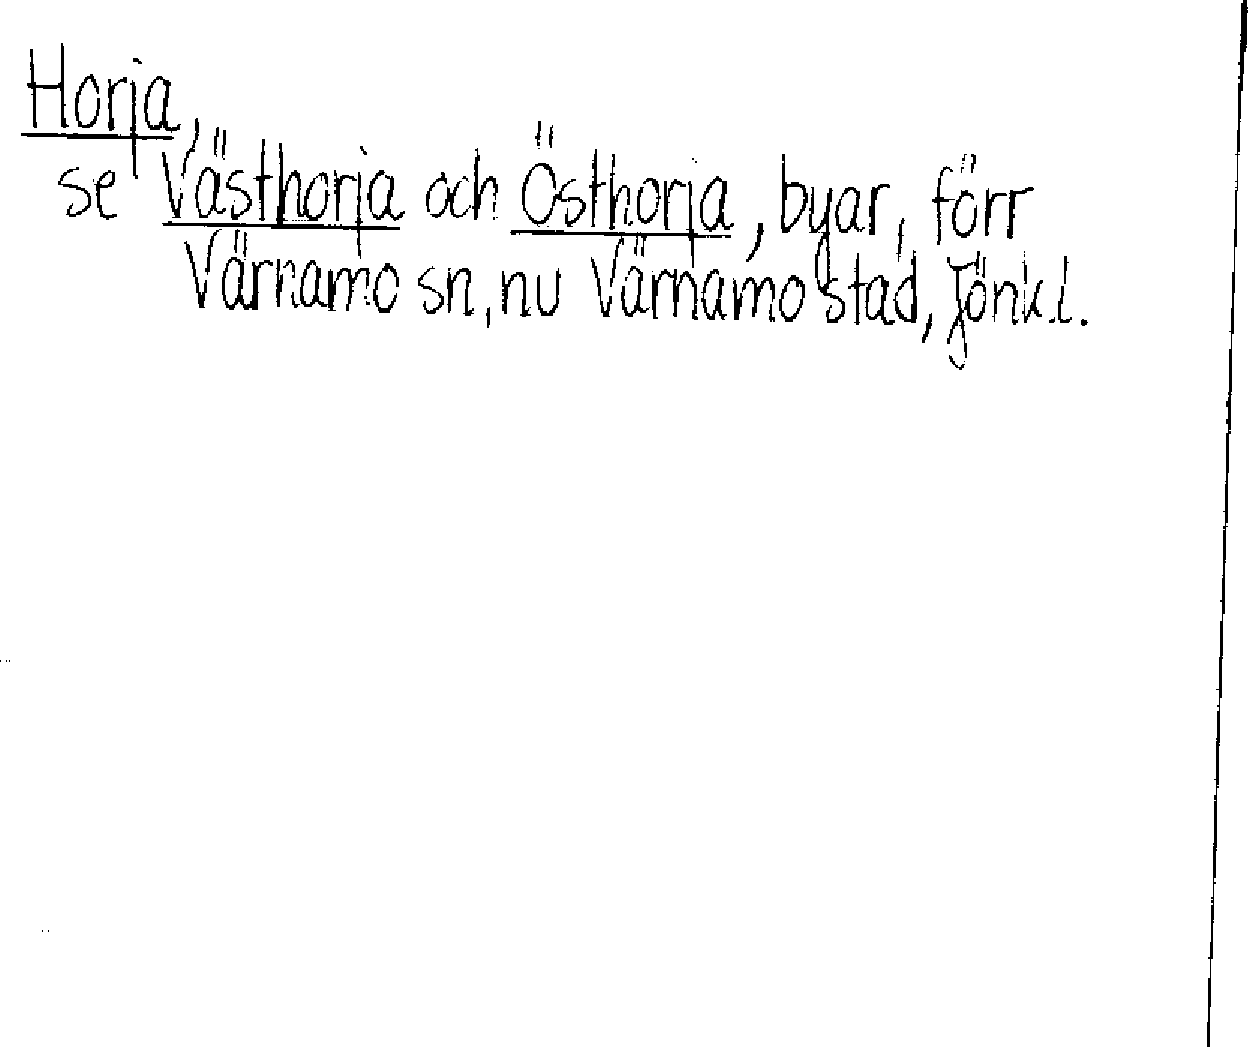 Horja,
se Västhorja och Östhorja, byar, förr
Värnamo sn, nu Värnamo stad, Jönk.l.